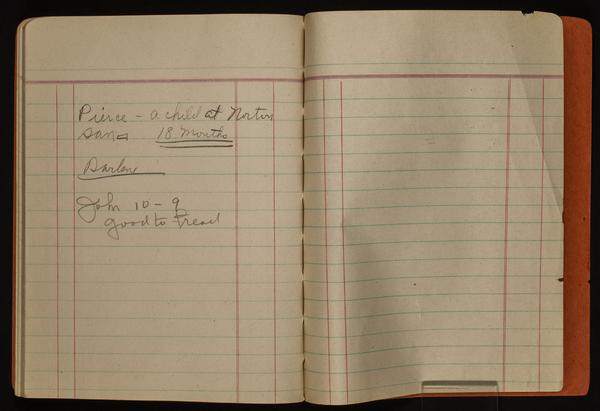 Pierce - a child at Norton
San. 18 Months
Darlene
John 10 - 9
good to read